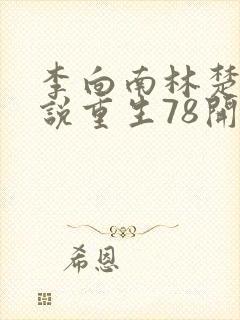 李向南林楚
說重生78開
希恩